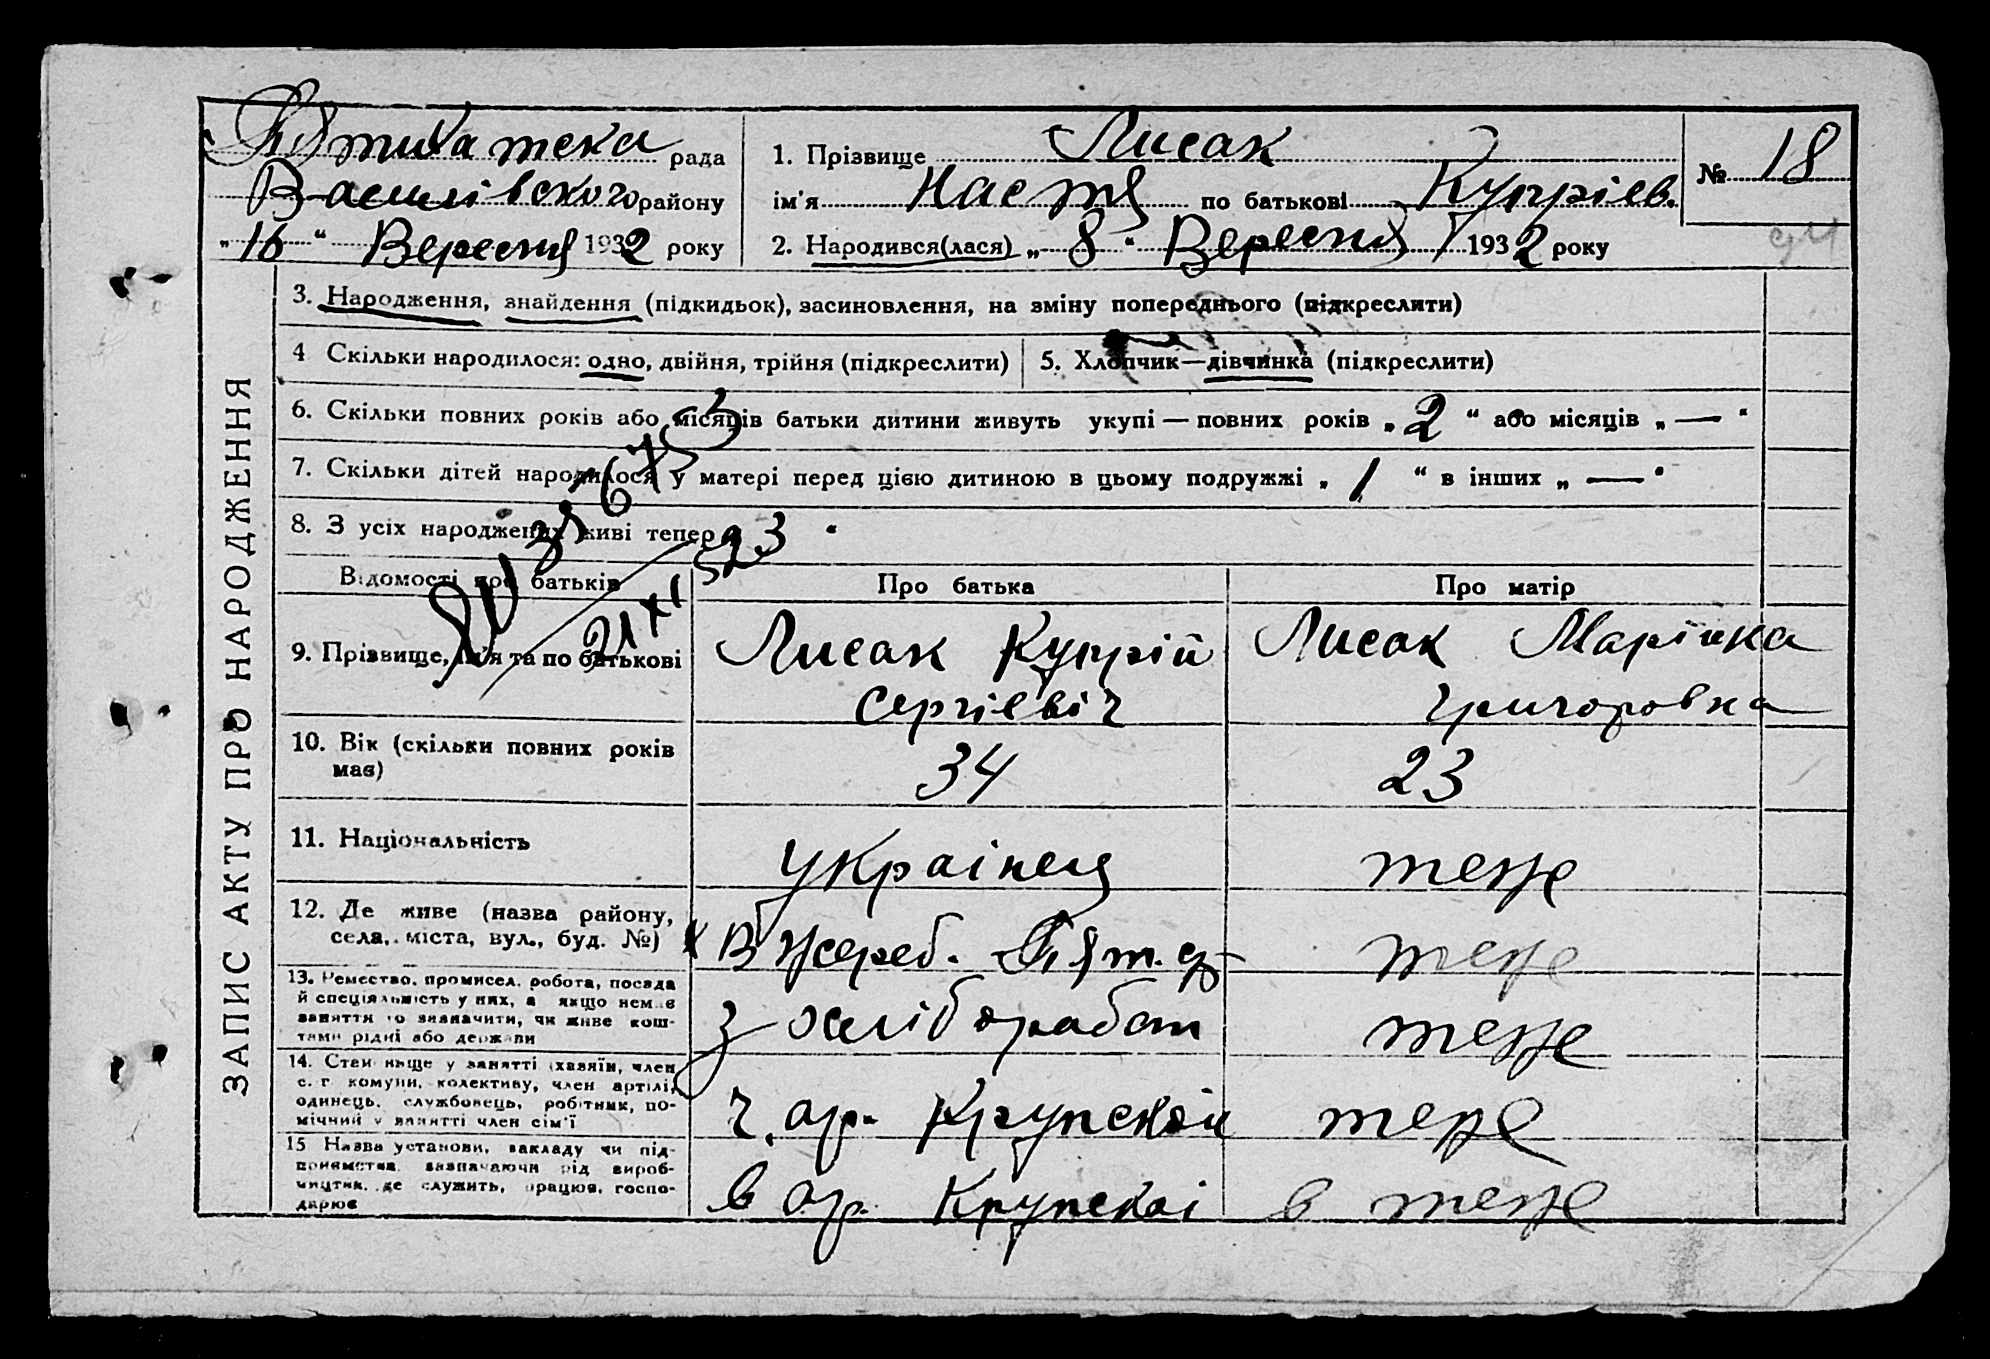 Пятихатска рада
Василівского району
„16“ Вересня 1932 року
1. Прізвище Лисак
ім'я Настя по батькові Купріев.
2. Народився(лася) „8“ Вересня 1932 року
№ 18
94
ЗАПИС АКТУ ПРО НАРОДЖЕННЯ
3. Народження, знайдення (підкидьок), засиновлення, на зміну попереднього (підкреслити)
4 Скільки народилося: одно, двійня, трійня (підкреслити)
5. Хлопчик—дівчинка (підкреслити)
6. Скільки повних років або місяців батьки дитини живуть укупі — повних років „2“ або місяців „—“
7. Скільки дітей народилося у матері перед цією дитиною в цьому подружжі „1“ в інших „—“
8. З усіх народжених живі тепер
21 XI 523
Відомості про батьків
Про батька
Про матір
9. Прізвище, ім'я та по батькові
Лисак Купрій
Сергіевіч
Лисак Марінка
Григоровна
10. Вік (скільки повних років має)
34
23
11. Національність
украінец
теже
12. Де живе (назва району,
села, міста, вул., буд. №)
В Жереб. Пят.
теже
13. Ремество, промисел, робота, посада
й спеціяльність у них, а якщо немає
заняття то зазначити, чи живе кош-
тами рідні або держави
хлібораб
теже
14. Становище у занятті (хазяїн, член
с. г. комуни, колективу, член артілі,
одинець, службовець, робітник, по-
мічний у занятті член сім'ї
ч. ар. Крупской
теже
15 Назва установи, закладу чи під-
приємства, зазначаючи рід вироб-
ництва, де служить, працює, госпо-
дарює
в ар. Крупскаі
в теже